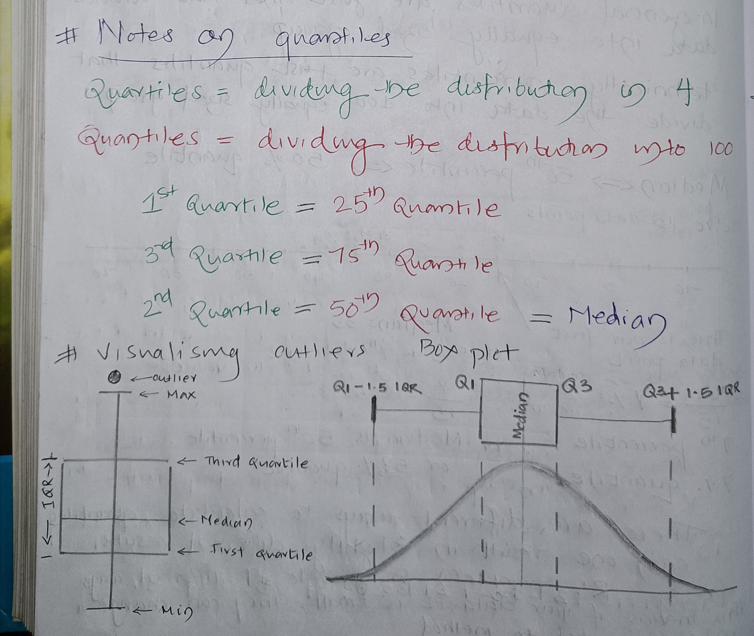 # Notes on quantiles
Quartiles = dividing the distribution in 4
Quantiles = dividing the distribution into 100
1st Quartile = 25th Quantile
3rd Quartile = 75th Quantile
2nd Quartile = 50th Quantile = Median
# Visualising outliers Box plot
← outlier
← MAX
← Third Quartile
← Median
← First Quartile
← Min
|← IQR →|
Q1-1.5 IQR Q1 Q3 Q3+1.5 IQR
Median